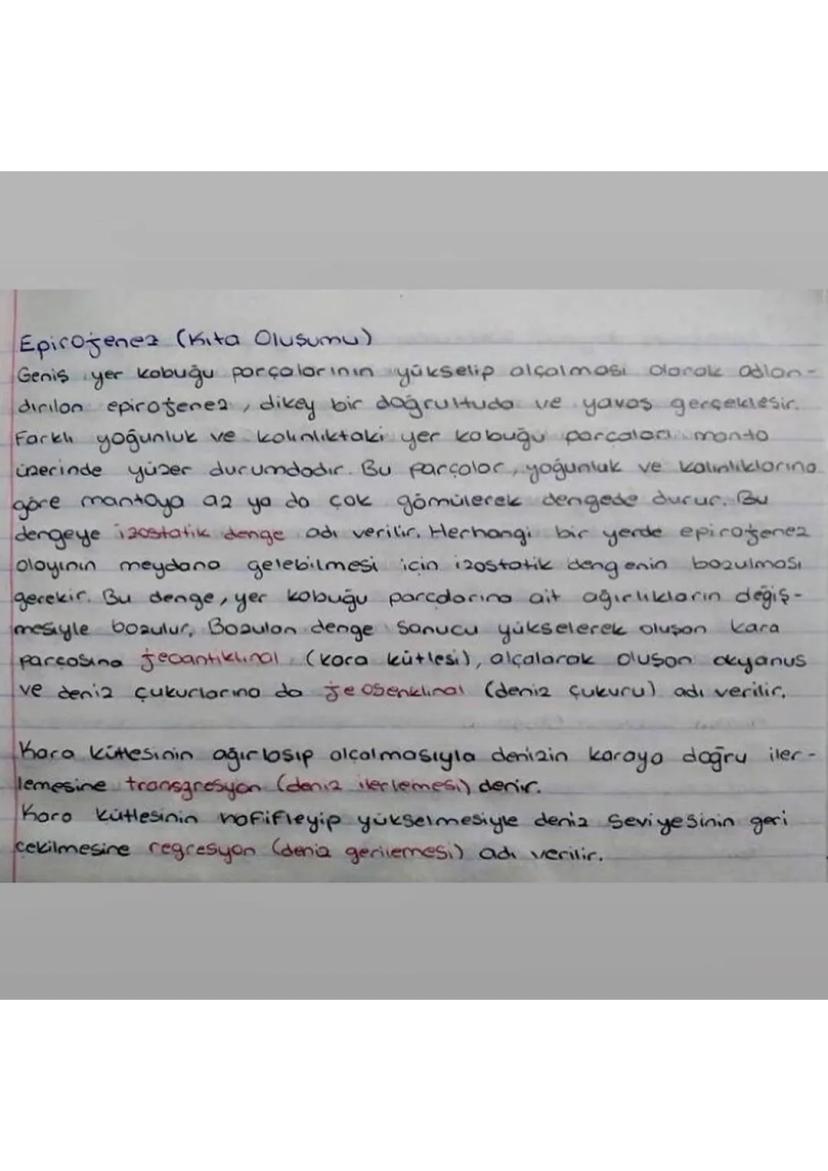 Epirojenez (Kıta Oluşumu)
Geniş yer kabuğu parçalarının yükselip alçalması olarak adlan-
dırılan epirojenez, dikey bir doğrultuda ve yavaş gerçekleşir.
Farklı yoğunluk ve kalınlıktaki yer kabuğu parçaları manto
üzerinde yüzer durumdadır. Bu parçalar, yoğunluk ve kalınlıklarına
göre mantoya az ya da çok gömülerek dengede durur. Bu
dengeye izostatik denge adı verilir. Herhangi bir yerde epirojenez
olayının meydana gelebilmesi için izostatik dengenin bozulması
gerekir. Bu denge, yer kabuğu parçalarına ait ağırlıkların değiş-
mesiyle bozulur. Bozulan denge sonucu yükselerek oluşan kara
parçasına jeoantiklinal (kara kütlesi), alçalarak oluşan okyanus
ve deniz çukurlarına da jeosenklinal (deniz çukuru) adı verilir.
Kara kütlesinin ağırlaşıp alçalmasıyla denizin karaya doğru iler-
lemesine transgresyon (deniz ilerlemesi) denir.
Kara kütlesinin hafifleyip yükselmesiyle deniz seviyesinin geri
çekilmesine regresyon (deniz gerilemesi) adı verilir.